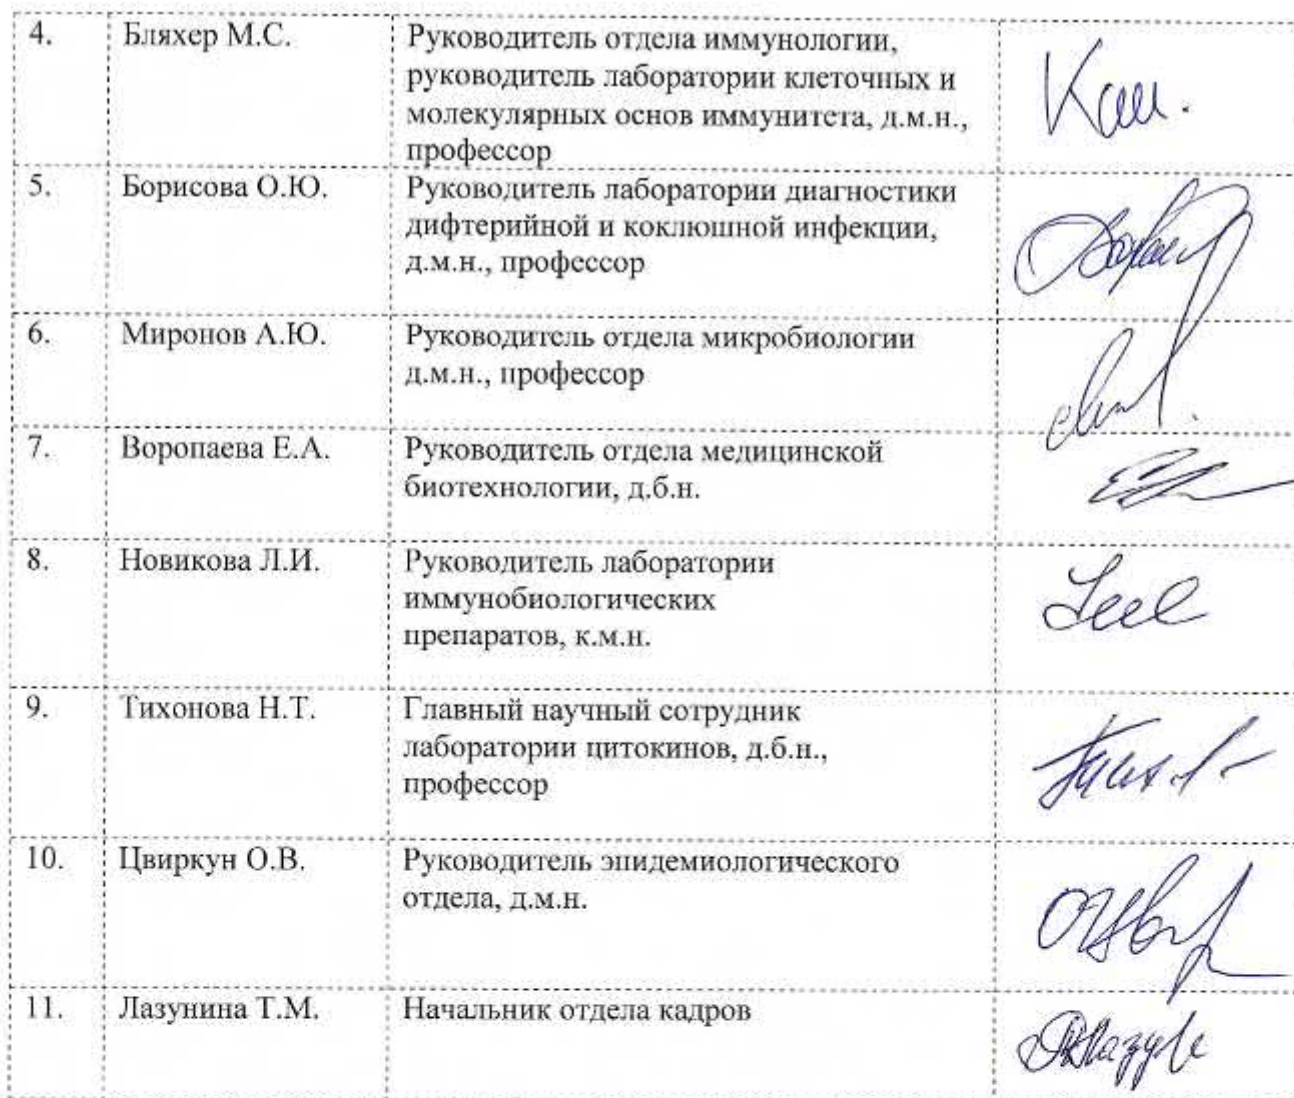 4. Бляхер М.С. Руководитель отдела иммунологии,
руководитель лаборатории клеточных и
молекулярных основ иммунитета, д.м.н.,
профессор
5. Борисова О.Ю. Руководитель лаборатории диагностики
дифтерийной и коклюшной инфекции,
д.м.н., профессор
6. Миронов А.Ю. Руководитель отдела микробиологии
д.м.н., профессор
7. Воропаева Е.А. Руководитель отдела медицинской
биотехнологии, д.б.н.
8. Новикова Л.И. Руководитель лаборатории
иммунобиологических
препаратов, к.м.н.
9. Тихонова Н.Т. Главный научный сотрудник
лаборатории цитокинов, д.б.н.,
профессор
10. Цвиркун О.В. Руководитель эпидемиологического
отдела, д.м.н.
11. Лазунина Т.М. Начальник отдела кадров